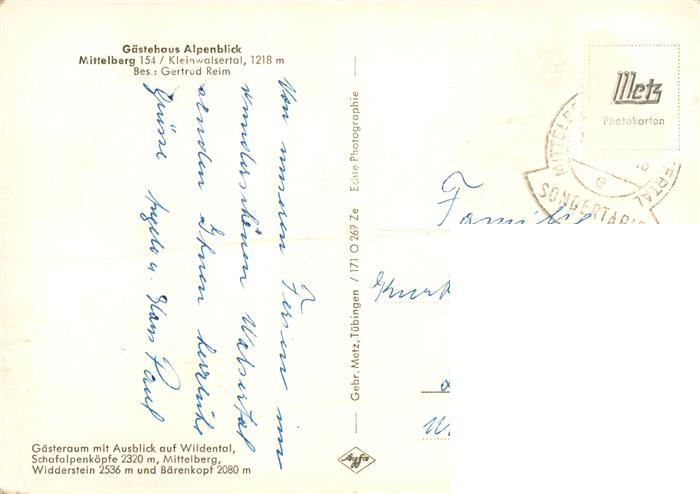 Gästehaus Alpenblick
Mittelberg 154 / Kleinwalsertal, 1218 m
Bes.: Gertrud Reim
Von unseren Ferien im
wunderschönen Walsertal
senden Ihnen herzliche
Grüsse Angela u. Hans Paul
Gästeraum mit Ausblick auf Wildental,
Schafalpenköpfe 2320 m, Mittelberg,
Widderstein 2536 m und Bärenkopf 2080 m
Gebr. Metz, Tübingen / 171 O 269 Ze Echte Photographie
Agfa
Metz
Photokarten
MITTELBE
ERTAL
e
SONDERTARIF
Familie
Kurt